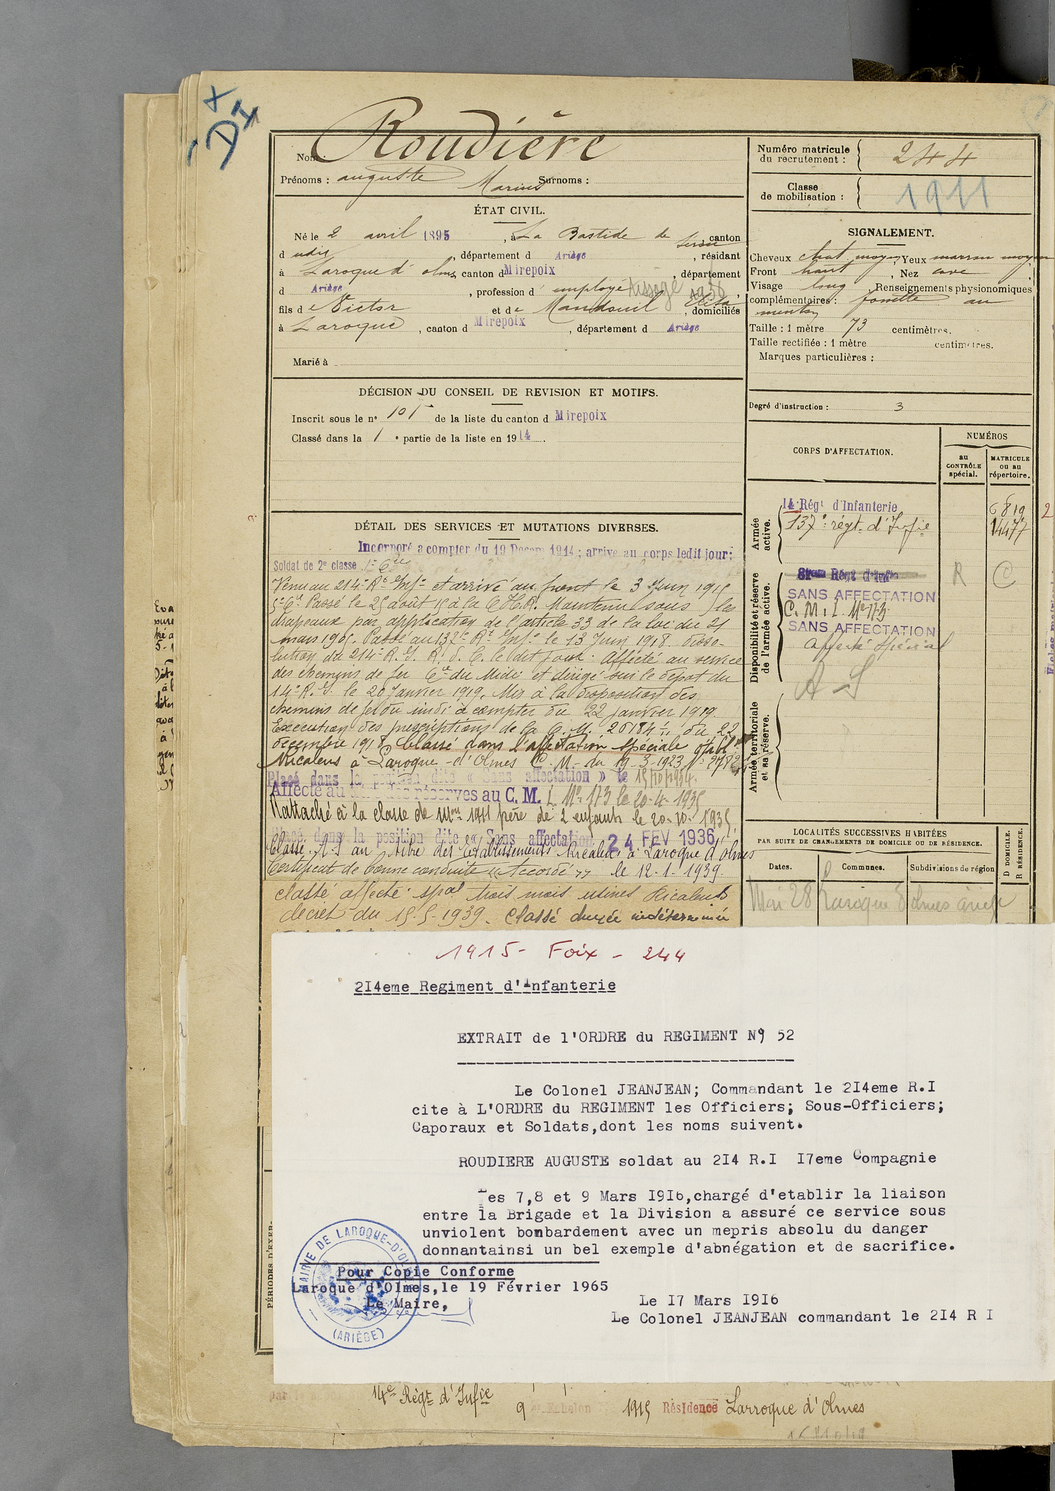 DI
Nom Roudière
Prénoms : auguste Marius Surnoms :
Numéro matricule du recrutement : 244
Classe de mobilisation : 1911
ÉTAT CIVIL.
Né le 2 avril 1895, à La Bastide de, canton
d udit, département d Ariège, résidant
à Laroque d'olmes canton d Mirepoix, département
d Ariège, profession d employé
fils de Victor et de Mandouil Elisa, domiciliés
à Laroque, canton d Mirepoix, département d Ariège
Marié à
SIGNALEMENT.
Cheveux chat moyen Yeux marron moyen
Front haut, Nez cave
Visage long, Renseignements physionomiques
complémentaires : fossette au
menton
Taille : 1 mètre 73 centimètres.
Taille rectifiée : 1 mètre centimètres.
Marques particulières :
Degré d'instruction : 3
DÉCISION DU CONSEIL DE REVISION ET MOTIFS.
Inscrit sous le n° 101 de la liste du canton d Mirepoix
Classé dans la 1 e partie de la liste en 1914.
CORPS D'AFFECTATION.
NUMÉROS
au CONTRÔLE spécial.
MATRICULE ou au répertoire.
Armée active.
14e Régt d'Infanterie 6819
137e régt. d'Infie 14477
Disponibilité et réserve de l'armée active.
Régt d'Infie R C
SANS AFFECTATION
C. M. I. No 173
SANS AFFECTATION
Affecté Spécial
A S
Armée territoriale et sa réserve.
DÉTAIL DES SERVICES ET MUTATIONS DIVERSES.
Incorporé a compter du 19 Décem 1914 ; arrivé au corps ledit jour ;
Soldat de 2e classe
Venu au 214e Rt Infie et arrivé au front le 3 Juin 1915
Passé le 25 août 15 à la C.H.R. Maintenu sous les
drapeaux par application de l'article 33 de la loi du 21
mars 1905. Passé au 132e Rt Infie le 13 Juin 1918. Disso-
lution du 214e R.I. le dit jour. Affecté au service
des chemins de fer Cie du Midi et dirigé sur le dépôt du
14e R.I. le 20 Janvier 1919. Mis à la disposition des
chemins de fer du midi à compter du 22 janvier 1919
Exécution des prescriptions de la C.M. 20184 du 22
décembre 1918. Classé dans l'affectation spéciale
Ricalens à Laroque-d'Olmes C.M. du 19-3-1923
Placé dans la position dite « Sans affectation » le
Affecté au des réserves au C. M. I. No 173 le 20-4-1935
Rattaché à la classe de 1911 père de 2 enfants le 20-10-1935
Placé dans la position dite « Sans affectation 24 FEV 1936
Classé A.S au titre des Etablissements Ricalens à Laroque d'olmes
Certificat de bonne conduite « Accordé » le 12-1-1939
Classé affecté spal trois mois usines Ricalens
décret du 15-5-1939. Classé durée indéterminée
LOCALITÉS SUCCESSIVES HABITÉES
PAR SUITE DE CHANGEMENTS DE DOMICILE OU DE RÉSIDENCE.
D DOMICILE. R RÉSIDENCE.
Dates. Communes. Subdivisions de région
Mai 28 Laroque d'olmes ariège
1915 - Foix - 244
2I4eme Regiment d'Infanterie
EXTRAIT de l'ORDRE du REGIMENT N9 52
Le Colonel JEANJEAN; Commandant le 2I4eme R.I
cite à L'ORDRE du REGIMENT les Officiers; Sous-Officiers;
Caporaux et Soldats,dont les noms suivent.
ROUDIERE AUGUSTE soldat au 2I4 R.I I7eme Compagnie
Les 7,8 et 9 Mars I9I6,chargé d'etablir la liaison
entre la Brigade et la Division a assuré ce service sous
unviolent bombardement avec un mepris absolu du danger
donnantainsi un bel exemple d'abnégation et de sacrifice.
Pour Copie Conforme
Laroque d'Olmes,le 19 Février 1965
Le Maire,
MAIRIE DE LAROQUE-D'OLMES
(ARIÈGE)
Le I7 Mars I9I6
Le Colonel JEANJEAN commandant le 2I4 R I
PÉRIODES D'EXER
14e Régt d'Infie
9 1915 Résidence Larroque d'Olmes